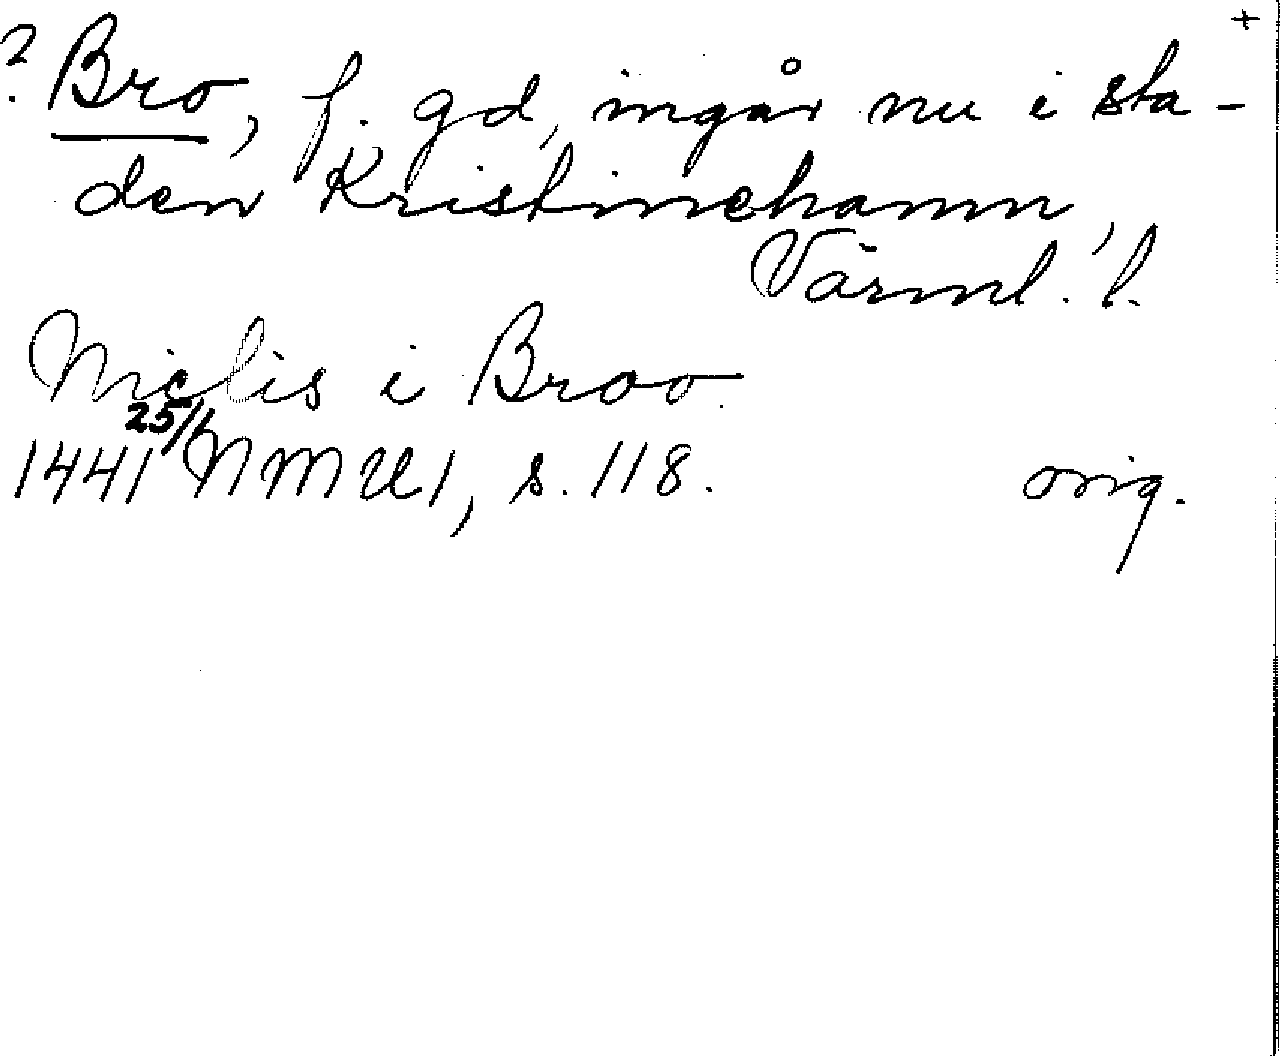 +
? Bro, f. gd, ingår nu i sta-
den Kristinehamn,
Värml. l.
Niclis i Broo.
1441 25/1 NMU1, s. 118. orig.